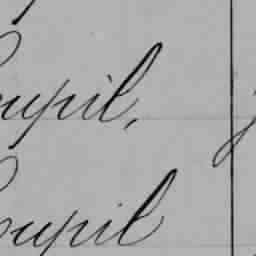 Pupil,
Pupil